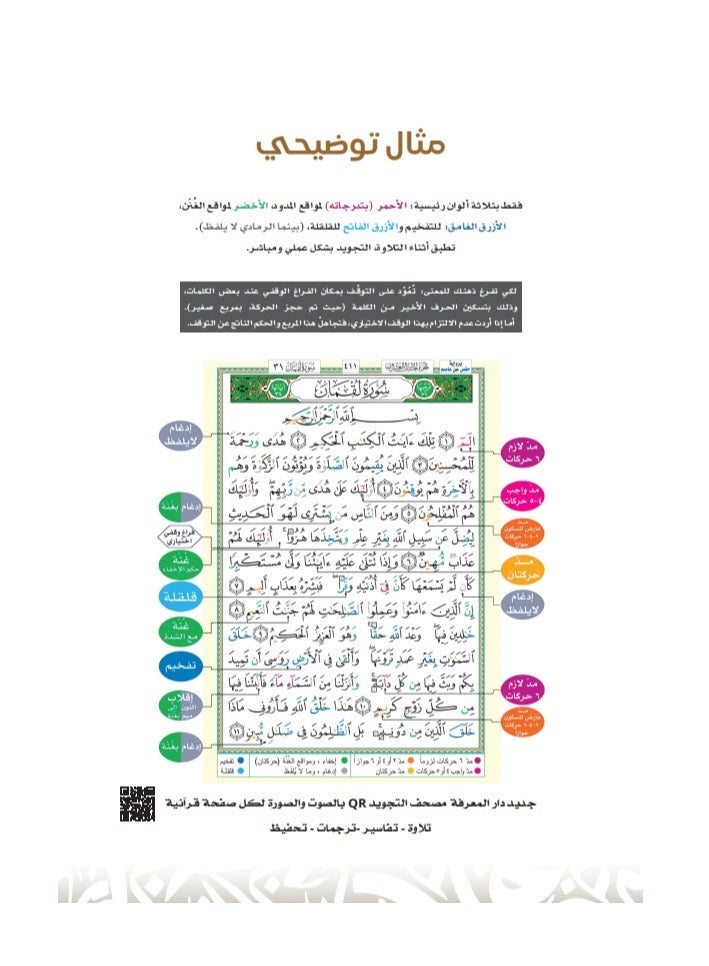 مثال توضيحي
فقط بثلاثة ألوان رئيسية: الأحمر (بتدرجاته) لمواقع المدود، الأخضر لمواقع الغُنَن،
الأزرق الغامق: للتفخيم والأزرق الفاتح للقلقلة، (بينما الرمادي لا يلفظ).
تطبق أثناء التلاوة، التجويد بشكل عملي ومباشر.
لكي تفرغ ذهنك للمعنى: تُعوَّد على التوقف بمكان الفراغ الوقفي عند بعض الكلمات،
وذلك بتسكين الحرف الأخير من الكلمة (حيث تم حجز الحركة، بمربع صغير).
أما إذا أردت عدم الالتزام بهذا الوقف الاختياري، فتجاهل هذا المربع والحكم الناتج عن التوقف.
سُورَةُ لُقْمَان ٣١
٤١١
برواية
حفص عن عاصم
سُورَةُ لُقْمَان
بِسْمِ اللَّهِ الرَّحْمَٰنِ الرَّحِيمِ
الٓمٓ ١ تِلْكَ ءَايَٰتُ الْكِتَٰبِ الْحَكِيمِ ٢ هُدًى وَرَحْمَةً
لِّلْمُحْسِنِينَ ٣ الَّذِينَ يُقِيمُونَ الصَّلَوٰةَ وَيُؤْتُونَ الزَّكَوٰةَ وَهُم
بِالْأَخِرَةِ هُمْ يُوقِنُونَ ٤ أُوْلَٰٓئِكَ عَلَىٰ هُدًى مِّن رَّبِّهِمْ وَأُوْلَٰٓئِكَ
هُمُ الْمُفْلِحُونَ ٥ وَمِنَ النَّاسِ مَن يَشْتَرِى لَهْوَ الْحَدِيثِ
لِيُضِلَّ عَن سَبِيلِ اللَّهِ بِغَيْرِ عِلْمٍ وَيَتَّخِذَهَا هُزُوًا أُوْلَٰٓئِكَ لَهُمْ
عَذَابٌ مُّهِينٌ ٦ وَإِذَا تُتْلَىٰ عَلَيْهِ ءَايَٰتُنَا وَلَّىٰ مُسْتَكْبِرًا
كَأَن لَّمْ يَسْمَعْهَا كَأَنَّ فِىٓ أُذُنَيْهِ وَقْرًا فَبَشِّرْهُ بِعَذَابٍ أَلِيمٍ ٧
إِنَّ الَّذِينَ ءَامَنُوا وَعَمِلُوا الصَّٰلِحَٰتِ لَهُمْ جَنَّٰتُ النَّعِيمِ ٨
خَٰلِدِينَ فِيهَا وَعْدَ اللَّهِ حَقًّا وَهُوَ الْعَزِيزُ الْحَكِيمُ ٩ خَلَقَ
السَّمَٰوَٰتِ بِغَيْرِ عَمَدٍ تَرَوْنَهَا وَأَلْقَىٰ فِى الْأَرْضِ رَوَٰسِىَ أَن تَمِيدَ
بِكُمْ وَبَثَّ فِيهَا مِن كُلِّ دَآبَّةٍ وَأَنزَلْنَا مِنَ السَّمَآءِ مَآءً فَأَنۢبَتْنَا فِيهَا
مِن كُلِّ زَوْجٍ كَرِيمٍ ١٠ هَٰذَا خَلْقُ اللَّهِ فَأَرُونِى مَاذَا
خَلَقَ الَّذِينَ مِن دُونِهِ بَلِ الظَّٰلِمُونَ فِى ضَلَٰلٍ مُّبِينٍ ١١
مد لازم
٦ حركات
مد واجب
٤-٥ حركات
مد
عارض للسكون
٢-٤-٦ حركات
جوازاً
مد
حركتان
إدغام
لايلفظ
مد لازم
٦ حركات
مد
عارض للسكون
٢-٤-٦ حركات
جوازاً
إدغام
لايلفظ
إدغام بغنة
فراغ وقفي
اختياري
غُنة
حكم الإخفاء
قلقلة
غُنة
مع الشدة
تفخيم
إقلاب
النون إلى
ميم بغنة
إدغام بغنة
مدّ ٦ حركات لزوماً مدّ ٢ أو ٤ أو ٦ جوازاً إخفاء، ومواقع الغُنَّة (حركتان) تفخيم
مدّ واجب ٤ أو ٥ حركات مدّ حركتان إدغام، وما لا يُلفَظ قلقلة
جديد دار المعرفة مصحف التجويد QR بالصوت والصورة لكل صفحة قرآنية
تلاوة - تفاسير -ترجمات - تحفيظ